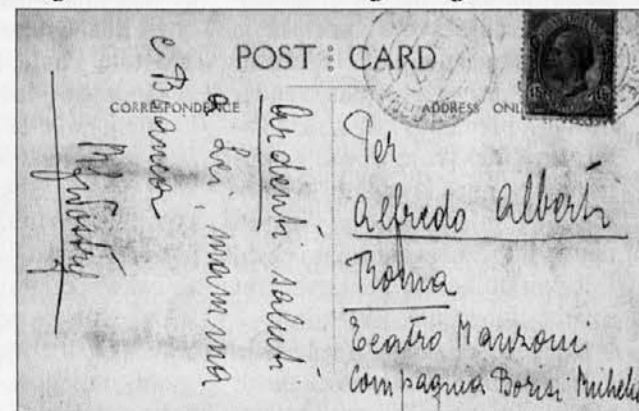 POST CARD
CORRESPONDENCE
ADDRESS ONL
ardenti saluti
a Lei, mamma
e Bianca
Per
Alfredo Alberti
Roma
Teatro Manzoni
Compagnia Borisi Michel